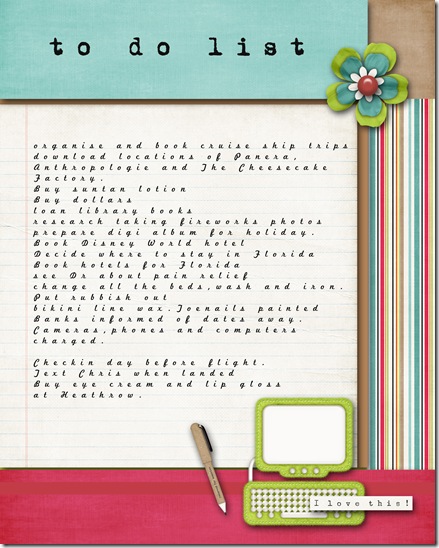 to do list
organise and book cruise ship trips
download locations of Panera,
Anthropologie and The Cheesecake
Factory.
Buy suntan lotion
Buy dollars
loan library books
research taking fireworks photos
prepare digi album for holiday.
Book Disney World hotel
Decide where to stay in Florida
Book hotels for Florida
see Dr about pain relief
change all the beds,wash and iron.
Put rubbish out
bikini line wax.Toenails painted
Banks informed of dates away.
Cameras,phones and computers
charged.
Checkin day before flight.
Text Chris when landed
Buy eye cream and lip gloss
at Heathrow.
I love this!